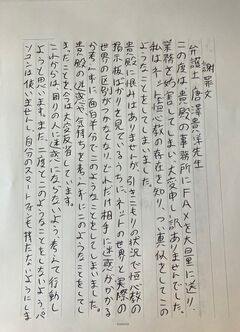 謝罪文
弁護士 唐澤貴洋先生
この度は貴殿の事務所にFAXを大量に送り、
業務を妨害してしまい、大変申し訳ありませんでした。
私はネットで恒心教の存在を知り、つい真似をしてこの
ようなことをしてしまいました。
貴殿に恨みはありませんが、引きこもりの状況で恒心教の
掲示板ばかりを見ているうちに、ネットの世界と実際の
世界の区別がつかなくなり、どれだけ相手に迷惑がかかる
か考えずに面白半分でこのようなことをしてしまいました。
貴殿の迷惑や気持ちを考えずにこのようなことをして
きたことを今は大変反省しています。
これからは周りの人に迷惑にならないよう、考えて行動し
ようと思います。また、二度とこのようなことをしないよう、パ
ソコンは使いませんし、自分のスマートフォンも持たないようにしま